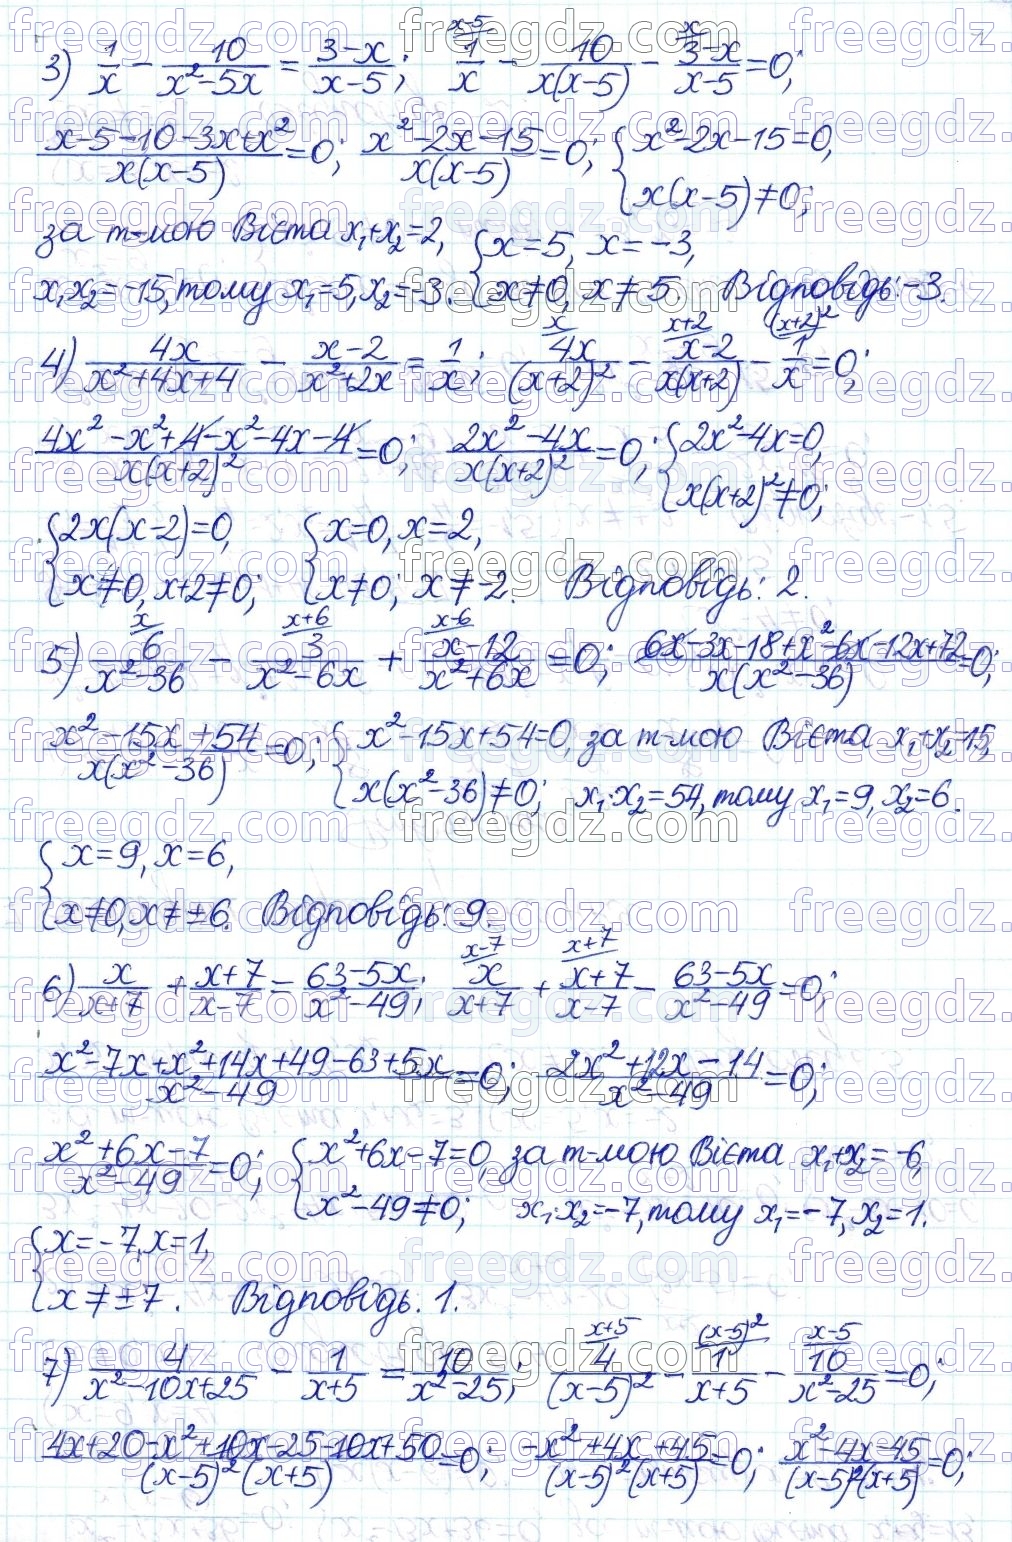 3) 1/x − 10/(x²−5x) = (3−x)/(x−5); 1/x (x−5) − 10/(x(x−5)) − (3−x)/(x−5) (x) = 0;
(x−5−10−3x+x²)/(x(x−5)) = 0; (x²−2x−15)/(x(x−5)) = 0; { x²−2x−15=0,
x(x−5)≠0;
за т-мою Вієта x₁+x₂=2, { x=5, x=−3,
x₁x₂=−15, тому x₁=5, x₂=−3. x≠0, x≠5. Відповідь: −3.
4) 4x/(x²+4x+4) − (x−2)/(x²+2x) = 1/x; 4x/(x+2)² (x) − (x−2)/(x(x+2)) (x+2) − 1/x ((x+2)²) = 0;
(4x²−x²+4−x²−4x−4)/(x(x+2)²) = 0; (2x²−4x)/(x(x+2)²) = 0; { 2x²−4x=0,
x(x+2)²≠0;
{ 2x(x−2)=0, { x=0, x=2,
x≠0, x+2≠0; x≠0; x≠−2. Відповідь: 2.
5) 6/(x²−36) (x) − 3/(x²−6x) (x+6) + (x−12)/(x²+6x) (x−6) = 0; (6x−3x−18+x²−6x−12x+72)/(x(x²−36)) = 0;
(x²−15x+54)/(x(x²−36)) = 0; { x²−15x+54=0, за т-мою Вієта x₁+x₂=15,
x(x²−36)≠0; x₁·x₂=54, тому x₁=9, x₂=6.
{ x=9, x=6,
x≠0, x≠±6. Відповідь: 9.
6) x/(x+7) + (x+7)/(x−7) = (63−5x)/(x²−49); x/(x+7) (x−7) + (x+7)/(x−7) (x+7) − (63−5x)/(x²−49) = 0;
(x²−7x+x²+14x+49−63+5x)/(x²−49) = 0; (2x²+12x−14)/(x²−49) = 0;
(x²+6x−7)/(x²−49) = 0; { x²+6x−7=0, за т-мою Вієта x₁+x₂=−6,
x²−49≠0; x₁·x₂=−7, тому x₁=−7, x₂=1.
{ x=−7, x=1,
x≠±7. Відповідь: 1.
7) 4/(x²−10x+25) − 1/(x+5) = 10/(x²−25); 4/(x−5)² (x+5) − 1/(x+5) ((x−5)²) − 10/(x²−25) (x−5) = 0;
(4x+20−x²+10x−25−10x+50)/((x−5)²(x+5)) = 0; (−x²+4x+45)/((x−5)²(x+5)) = 0; (x²−4x−45)/((x−5)²(x+5)) = 0;